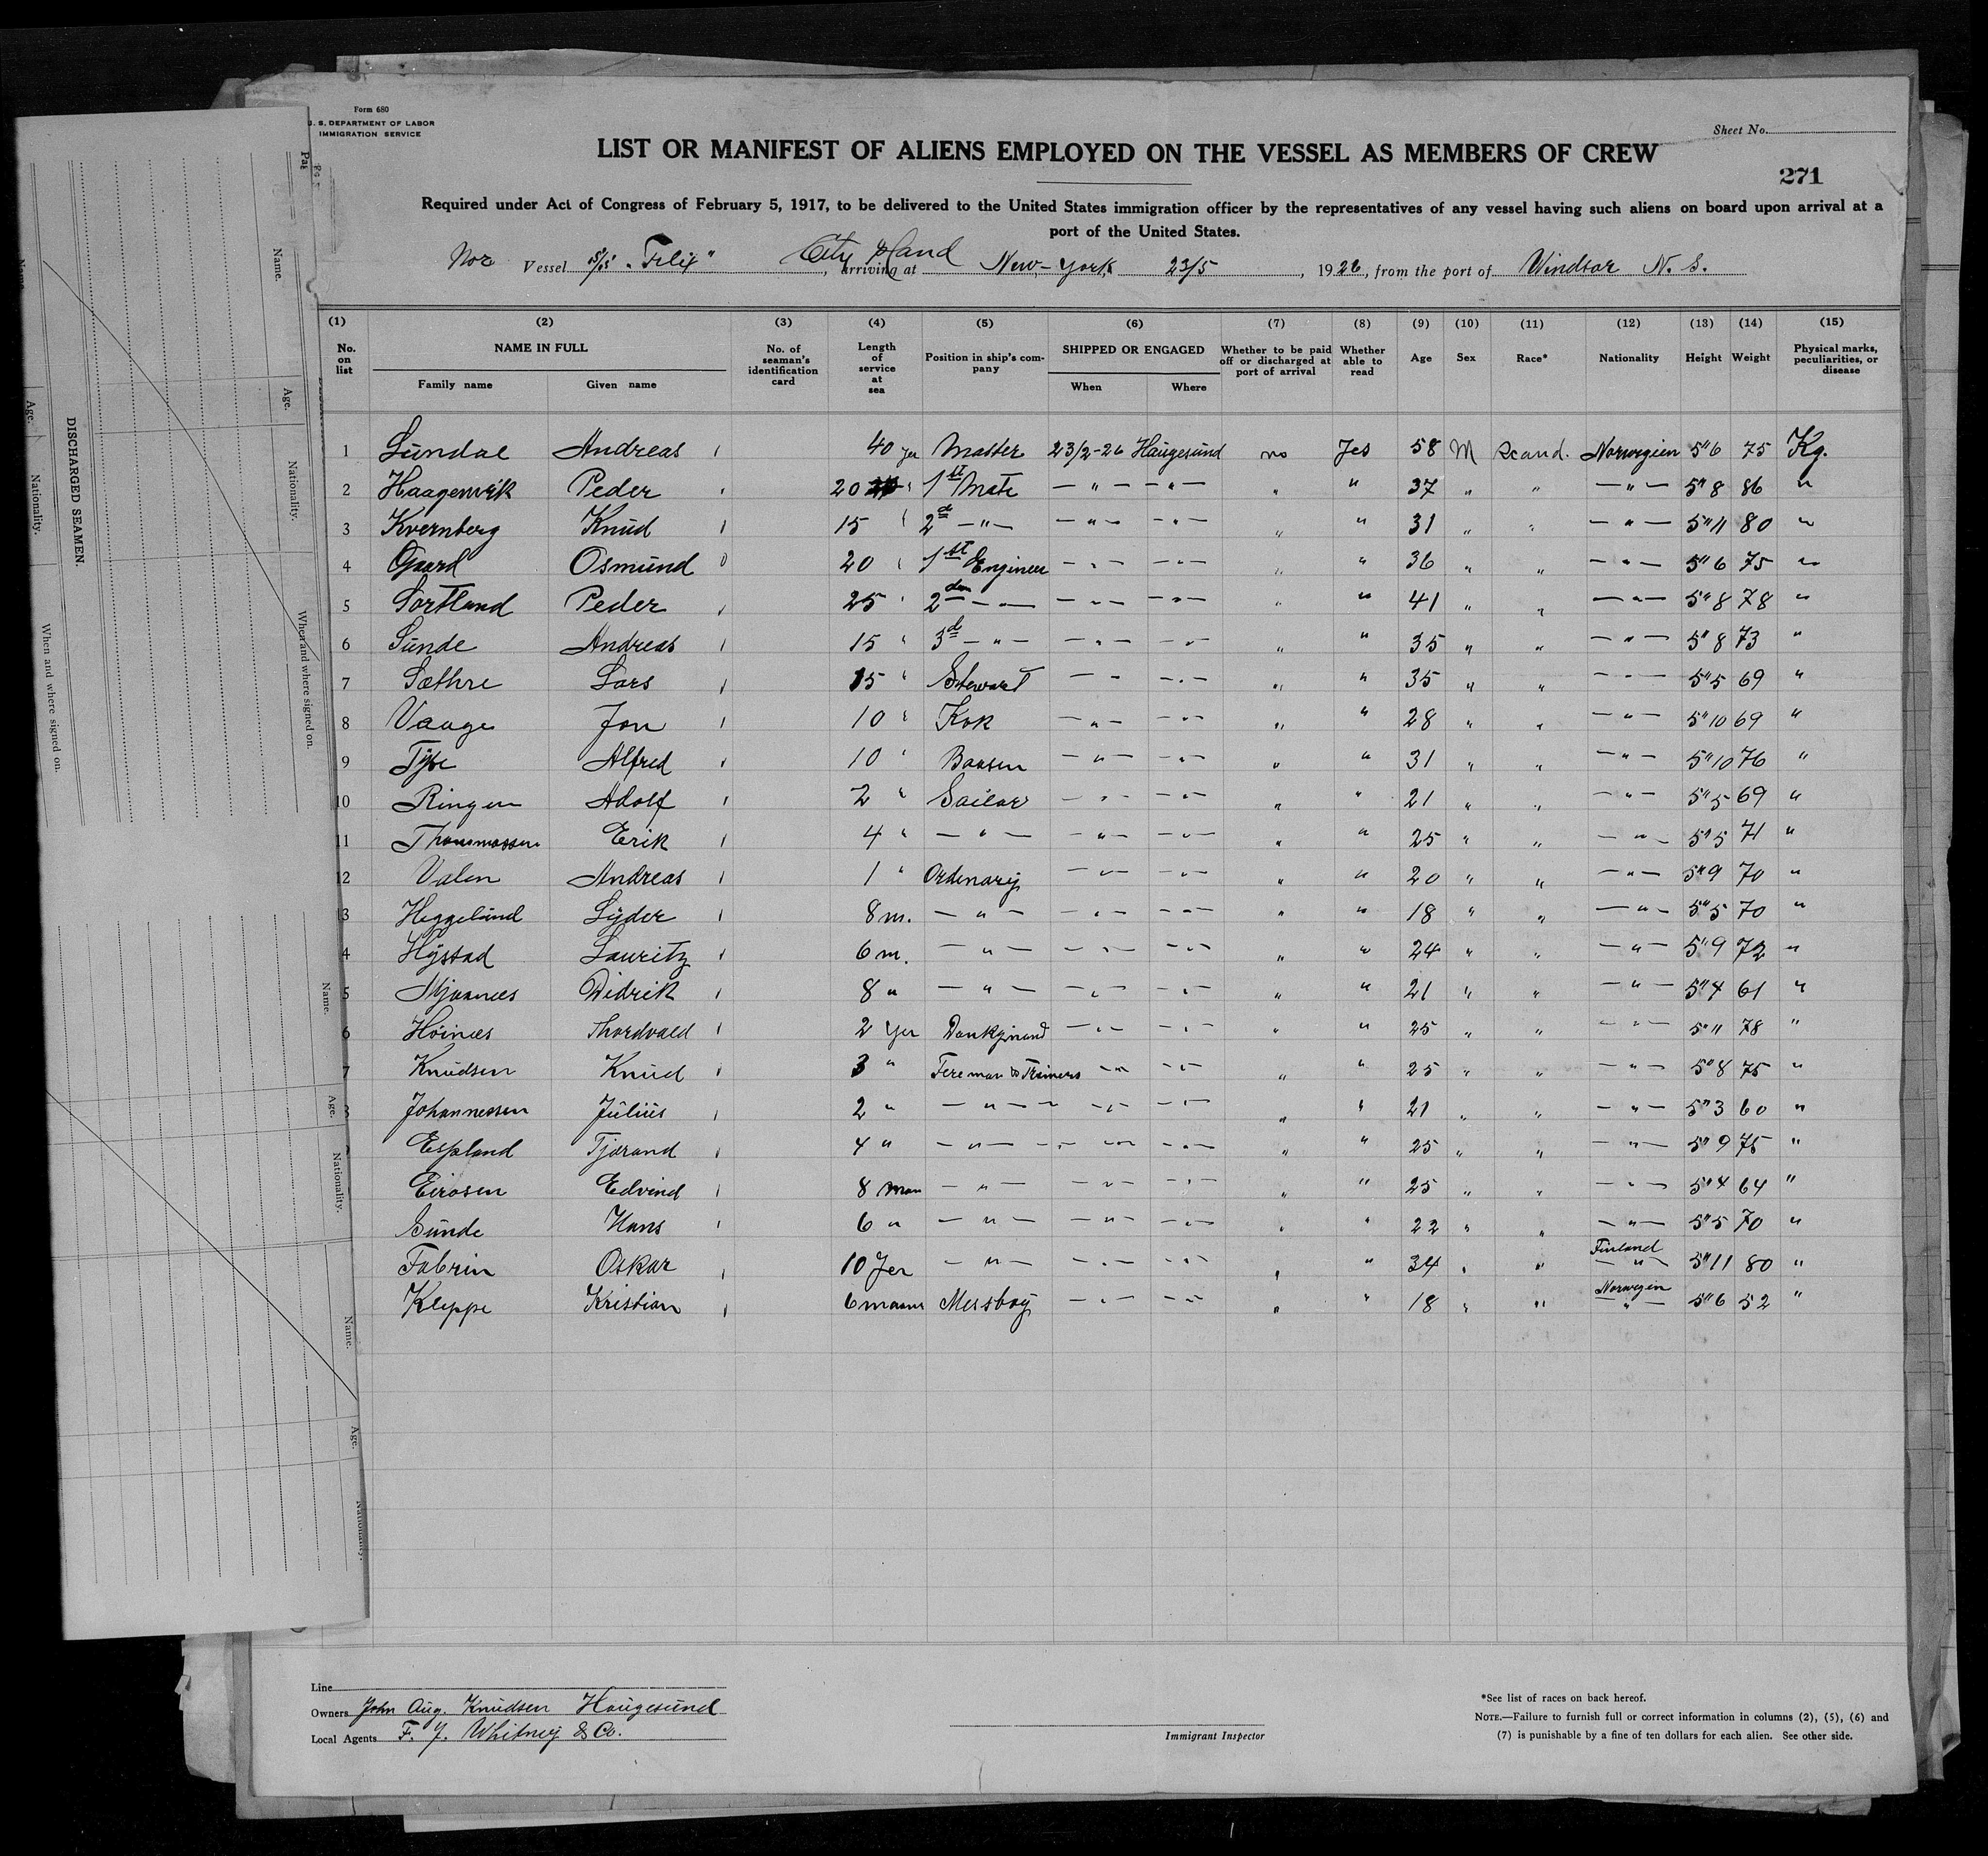 Form 680
U. S. DEPARTMENT OF LABOR
IMMIGRATION SERVICE
Sheet No.
LIST OR MANIFEST OF ALIENS EMPLOYED ON THE VESSEL AS MEMBERS OF CREW
271
Required under Act of Congress of February 5, 1917, to be delivered to the United States immigration officer by the representatives of any vessel having such aliens on board upon arrival at a
port of the United States.
Nor Vessel S/S "Felix", arriving at City Island New-York 23/5, 1926, from the port of Windsor N. S.
(1) (2) (3) (4) (5) (6) (7) (8) (9) (10) (11) (12) (13) (14) (15)
No. on list NAME IN FULL Family name Given name No. of seaman's identification card Length of service at sea Position in ship's company SHIPPED OR ENGAGED When Where Whether to be paid off or discharged at port of arrival Whether able to read Age Sex Race* Nationality Height Weight Physical marks, peculiarities, or disease
1 Sundal Andreas 40 Yer Master 23/2-26 Haugesund no Jes 58 M Scand. Norwegien 5"6 75 Kg.
2 Haagenvik Peder 20 " 1st Mate — " — — " — " " 37 " " — " — 5"8 86 "
3 Kvernberg Knud 15 " 2d — " — — " — — " — " " 31 " " — " — 5"11 80 "
4 Gaard Osmund 20 " 1st Engineer — " — — " — " " 36 " " — " — 5"6 75 "
5 Sortland Peder 25 " 2den — " — — " — — " — " " 41 " " — " — 5"8 78 "
6 Sunde Andreas 15 " 3d — " — — " — — " — " " 35 " " — " — 5"8 73 "
7 Sæthre Lars 15 " Stewart — " — — " — " " 35 " " — " — 5"5 69 "
8 Vaage Jon 10 " Kok — " — — " — " " 28 " " — " — 5"10 69 "
9 Alfred 10 " Baasen — " — — " — " " 31 " " — " — 5"10 76 "
10 Ringen Adolf 2 " Sailor — " — — " — " " 21 " " — " — 5"5 69 "
11 Thommassen Erik 4 " — " — — " — — " — " " 25 " " — " — 5"5 71 "
12 Valen Andreas 1 " Ordenary — " — — " — " " 20 " " — " — 5"9 70 "
13 Heggelund Lyder 8 m. — " — — " — — " — " " 18 " " — " — 5"5 70 "
4 Hystad Lauritz 6 m. — " — — " — — " — " " 24 " " — " — 5"9 72 "
5 Mjaanes Didrik 8 " — " — — " — — " — " " 21 " " — " — 5"4 61 "
6 Høines Thordvald 2 Yer Donkymand — " — — " — " " 25 " " — " — 5"11 78 "
7 Knudsen Knud 3 " Fereman & Trimers — " — — " — " " 25 " " — " — 5"8 75 "
Johannessen Julius 2 " — " — — " — — " — " " 21 " " — " — 5"3 60 "
Espland Tjerand 4 " — " — — " — — " — " " 25 " " — " — 5"9 75 "
Eirosen Edvind 8 man — " — — " — — " — " " 25 " " — " — 5"4 64 "
Sunde Hans 6 " — " — — " — — " — " " 22 " " — " — 5"5 70 "
Fabrin Oskar 10 Jer — " — — " — — " — " " 34 " " Finland — " — 5"11 80 "
Kleppe Kristian 6 Messboy — " — — " — " " 18 " " Norwegin — " — 5"6 52 "
Line
Owners John Aug. Knudsen Haugesund
Local Agents F. Y. Whitney & Co.
Immigrant Inspector
*See list of races on back hereof.
NOTE.—Failure to furnish full or correct information in columns (2), (5), (6) and
(7) is punishable by a fine of ten dollars for each alien. See other side.
DISCHARGED SEAMEN.
Name. Age. Nationality. When and where signed on.
Name. Age. Nationality. When and where signed on.
Name. Age. Nationality.
Name. Age. Nationality.